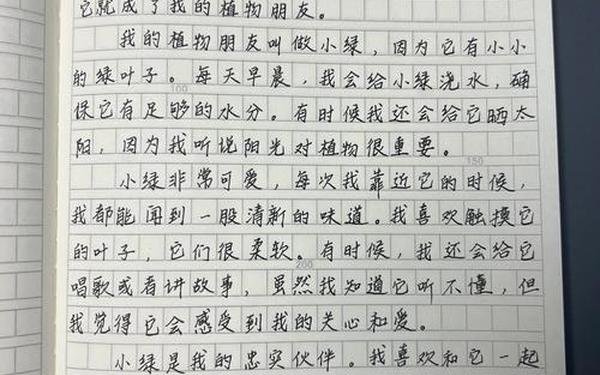 它就成了我的植物朋友。
我的植物朋友叫做小绿，因为它有小小
的绿叶子。每天早晨，我会给小绿浇水，确
100
保它有足够的水分。有时候我还会给它晒太
阳，因为我听说阳光对植物很重要。
150
小绿非常可爱，每次我靠近它的时候，
我都能闻到一股清新的味道。我喜欢触摸它
的叶子，它们很柔软。有时候，我还会给它
200
唱歌或者讲故事，虽然我知道它听不懂，但
我觉得它会感受到我的关心和爱。
小绿是我的忠实伙伴。我喜欢和它一起